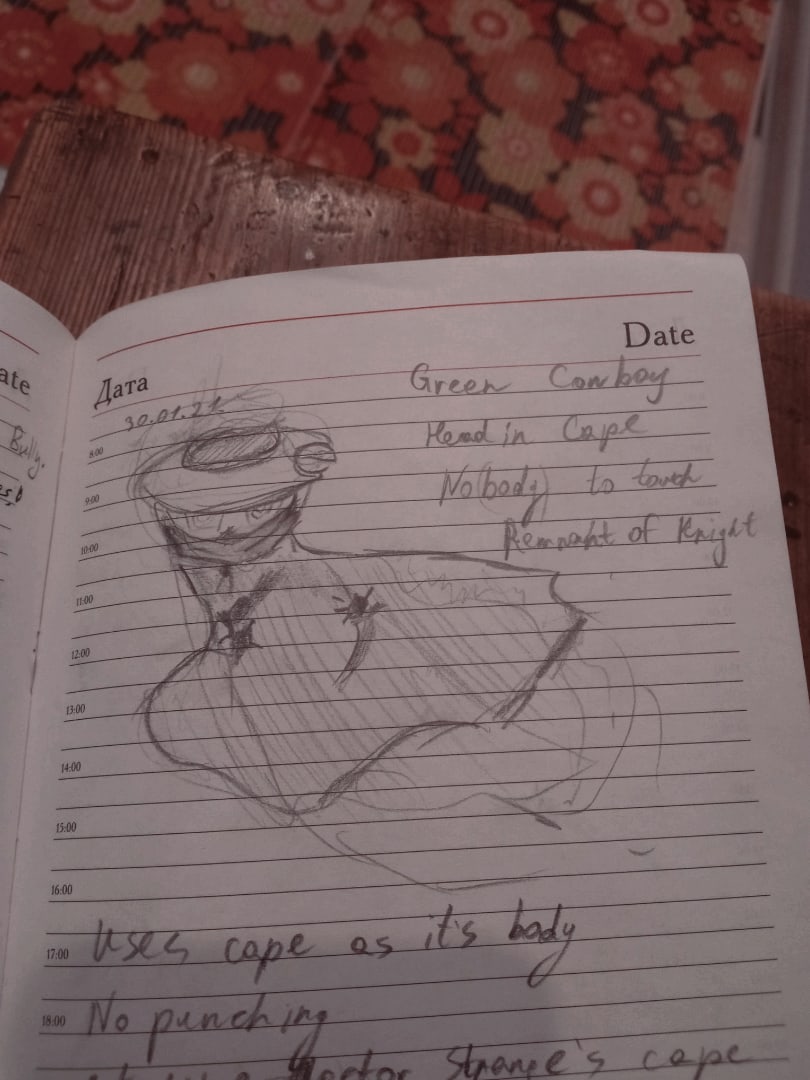 ate
Bully.
Дата
Date
30.01.21
Green Cowboy
Head in Cape
No(body) to touch
Remnant of Knight
8:00
9:00
10:00
11:00
12:00
13:00
14:00
15:00
16:00
17:00 Uses cape as it's body
18:00 No punching
Doctor Strange's cape